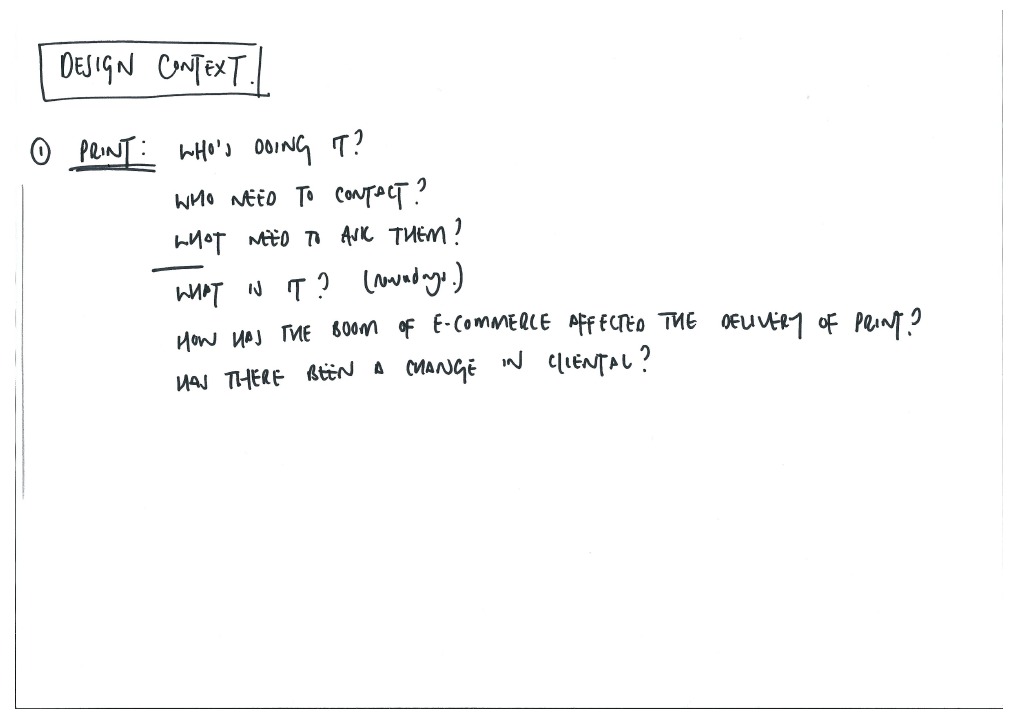 DESIGN CONTEXT.
① PRINT: WHO'S DOING IT?
WHO NEED TO CONTACT?
WHAT NEED TO ASK THEM?
WHAT IS IT? (nowadays.)
HOW HAS THE BOOM OF E-COMMERCE AFFECTED THE DELIVERY OF PRINT?
HAS THERE BEEN A CHANGE IN CLIENTAL?